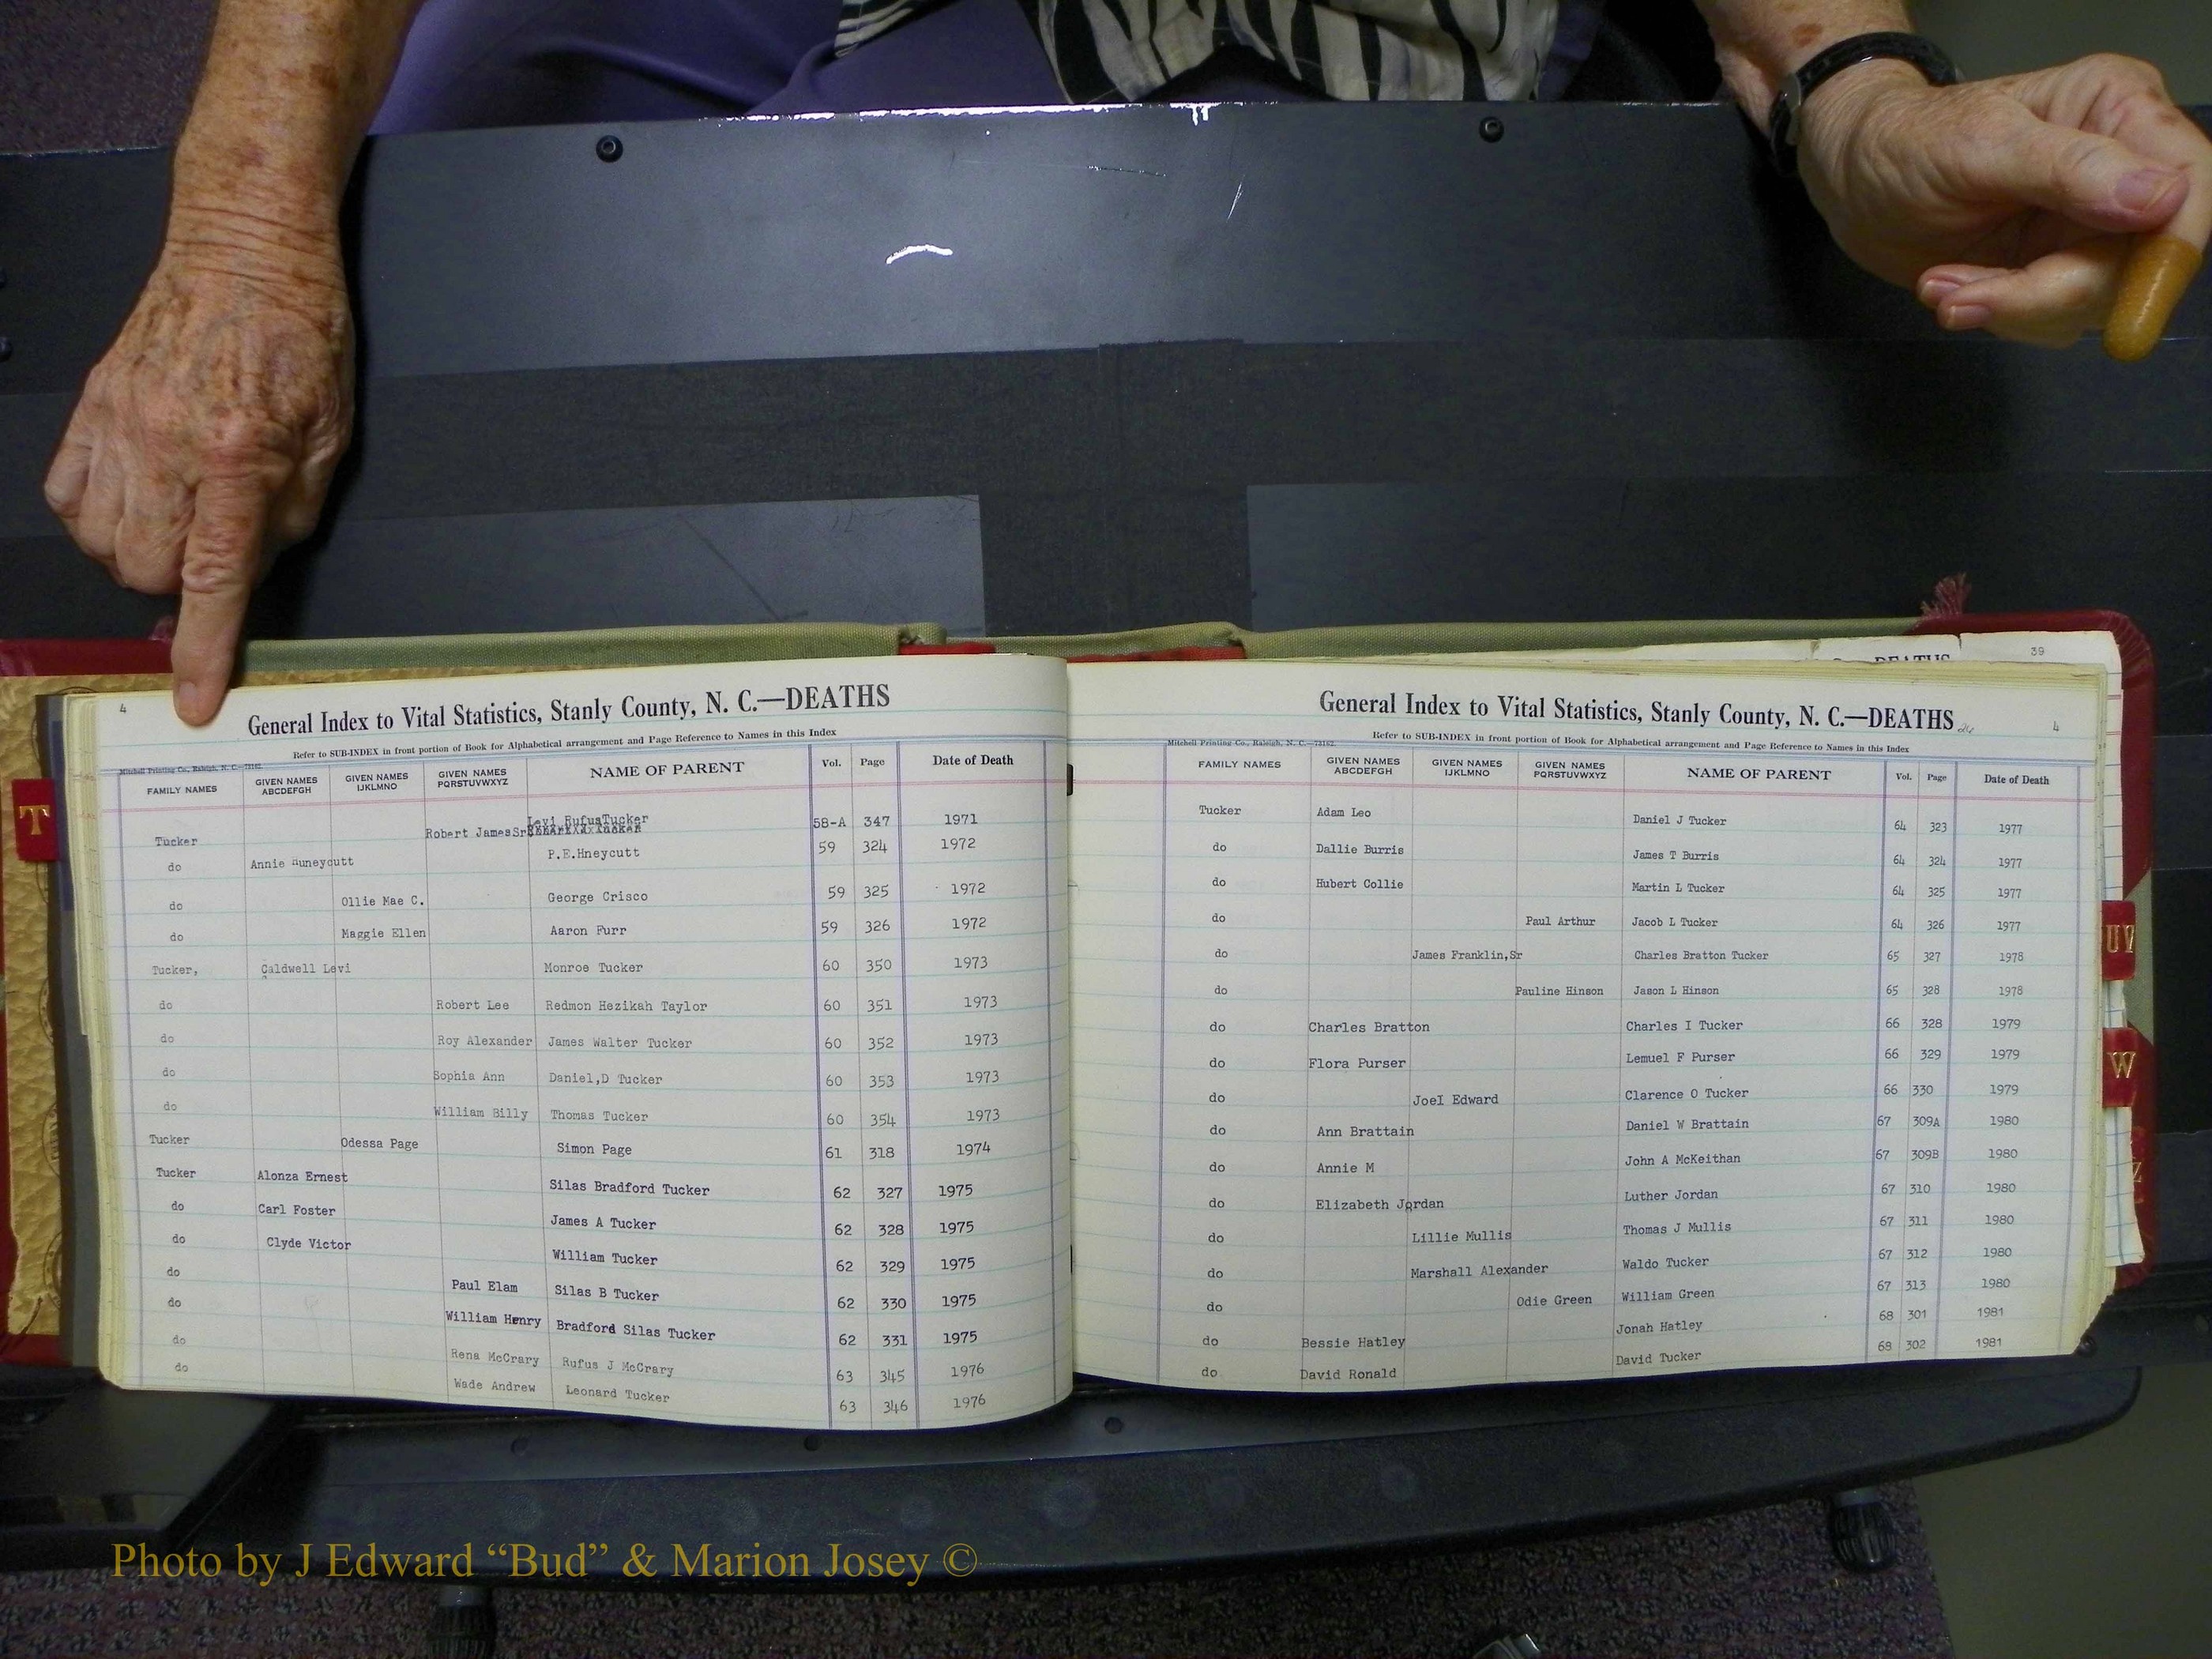 4
General Index to Vital Statistics, Stanly County, N. C.—DEATHS
Refer to SUB-INDEX in front portion of Book for Alphabetical arrangement and Page Reference to Names in this Index
Mitchell Printing Co., Raleigh, N. C.—73162
FAMILY NAMES GIVEN NAMES ABCDEFGH GIVEN NAMES IJKLMNO GIVEN NAMES PQRSTUVWXYZ NAME OF PARENT Vol. Page Date of Death
Tucker Robert James Sr Levi Rufus Tucker 58-A 347 1971
do Annie Huneycutt P.E.Hneycutt 59 324 1972
do Ollie Mae C. George Crisco 59 325 1972
do Maggie Ellen Aaron Furr 59 326 1972
Tucker, Caldwell Levi Monroe Tucker 60 350 1973
do Robert Lee Redmon Hezikah Taylor 60 351 1973
do Roy Alexander James Walter Tucker 60 352 1973
do Sophia Ann Daniel,D Tucker 60 353 1973
do William Billy Thomas Tucker 60 354 1973
Tucker Odessa Page Simon Page 61 318 1974
Tucker Alonza Ernest Silas Bradford Tucker 62 327 1975
do Carl Foster James A Tucker 62 328 1975
do Clyde Victor William Tucker 62 329 1975
do Paul Elam Silas B Tucker 62 330 1975
do William Henry Bradford Silas Tucker 62 331 1975
do Rena McCrary Rufus J McCrary 63 345 1976
do Wade Andrew Leonard Tucker 63 346 1976
T
39
DEATHS
General Index to Vital Statistics, Stanly County, N. C.—DEATHS
4
Refer to SUB-INDEX in front portion of Book for Alphabetical arrangement and Page Reference to Names in this Index
Mitchell Printing Co., Raleigh, N. C.—73162
FAMILY NAMES GIVEN NAMES ABCDEFGH GIVEN NAMES IJKLMNO GIVEN NAMES PQRSTUVWXYZ NAME OF PARENT Vol. Page Date of Death
Tucker Adam Leo Daniel J Tucker 64 323 1977
do Dallie Burris James T Burris 64 324 1977
do Hubert Collie Martin L Tucker 64 325 1977
do Paul Arthur Jacob L Tucker 64 326 1977
do James Franklin,Sr Charles Bratton Tucker 65 327 1978
do Pauline Hinson Jason L Hinson 65 328 1978
do Charles Bratton Charles I Tucker 66 328 1979
do Flora Purser Lemuel F Purser 66 329 1979
do Joel Edward Clarence O Tucker 66 330 1979
do Ann Brattain Daniel W Brattain 67 309A 1980
do Annie M John A McKeithan 67 309B 1980
do Elizabeth Jordan Luther Jordan 67 310 1980
do Lillie Mullis Thomas J Mullis 67 311 1980
do Marshall Alexander Waldo Tucker 67 312 1980
do Odie Green William Green 67 313 1980
do Bessie Hatley Jonah Hatley 68 301 1981
do David Ronald David Tucker 68 302 1981
UV
W
Z
Photo by J Edward “Bud” & Marion Josey ©